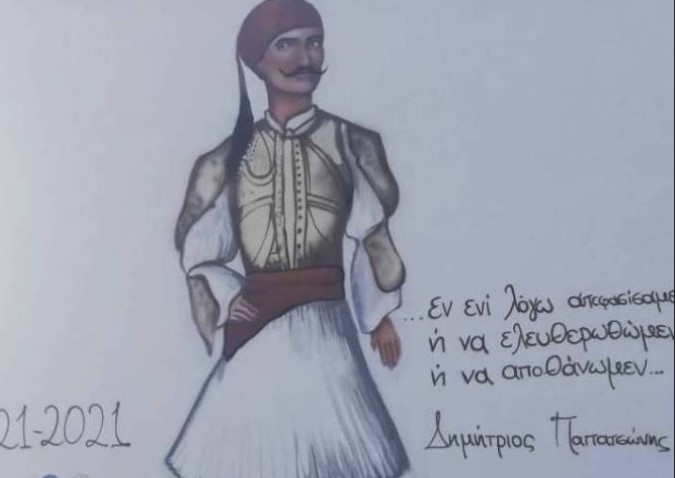 ...εν ενί λόγω απεφασίσαμε
ή να ελευθερωθώμεν
ή να αποθάνωμεν...
21-2021
Δημήτριος Παπατσώνης